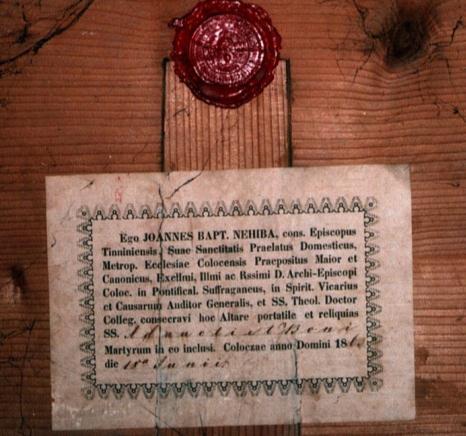 Ego JOANNES BAPT. NEHIBA, cons. Episcopus
Tinniniensis, Suae Sanctitatis Praelatus Domesticus,
Metrop. Ecclesiae Colocensis Praepositus Maior et
Canonicus, Excelmi, Illmi ac Rssimi D. Archi-Episcopi
Coloc. in Pontifical. Suffraganeus, in Spirit. Vicarius
et Causarum Auditor Generalis, et SS. Theol. Doctor
Colleg. consecravi hoc Altare portatile et reliquias
SS. Adaucti et Boni
Martyrum in eo inclusi. Coloczae anno Domini 18
die 18a Junii